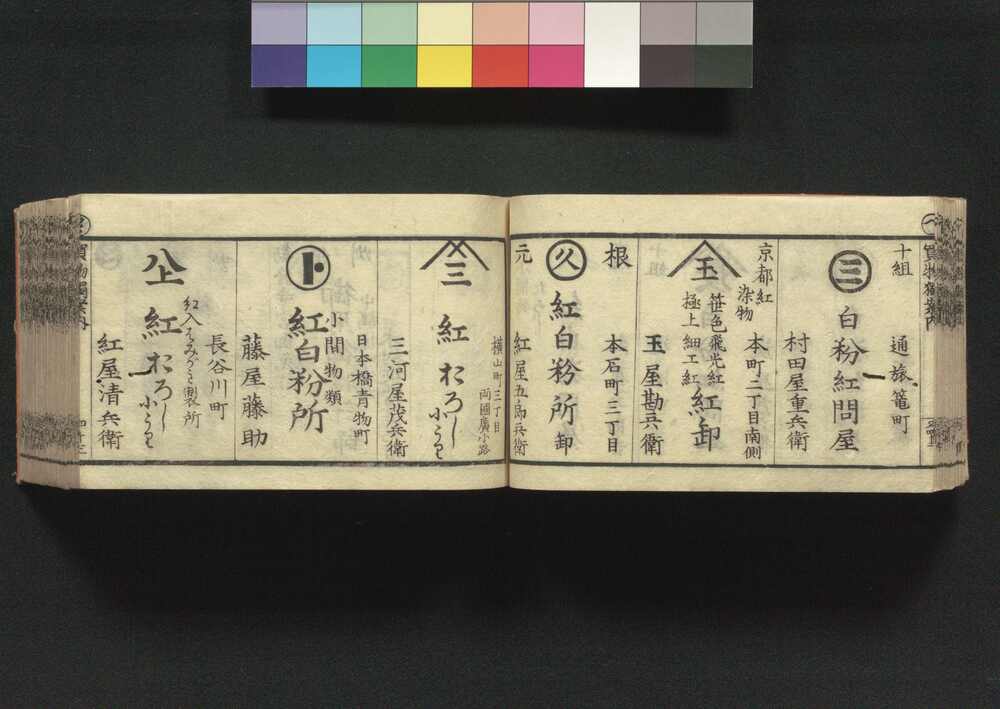 十組
通旅篭町
三
白粉紅問屋
村田屋重兵衛
京都紅
染物
本町二丁目南側
玉
笹色飛光紅
極上細工紅
紅卸
玉屋勘兵衛
根
本石町三丁目
久
紅白粉所卸
元
紅屋五郎兵衛
横山町三丁目
両國廣小路
三
紅おろし
小うり
三河屋茂兵衛
日本橋青物町
小間物類
ト
紅白粉所
藤屋藤助
長谷川町
紅入はみがき製所
上
紅おろし
小うり
紅屋清兵衛